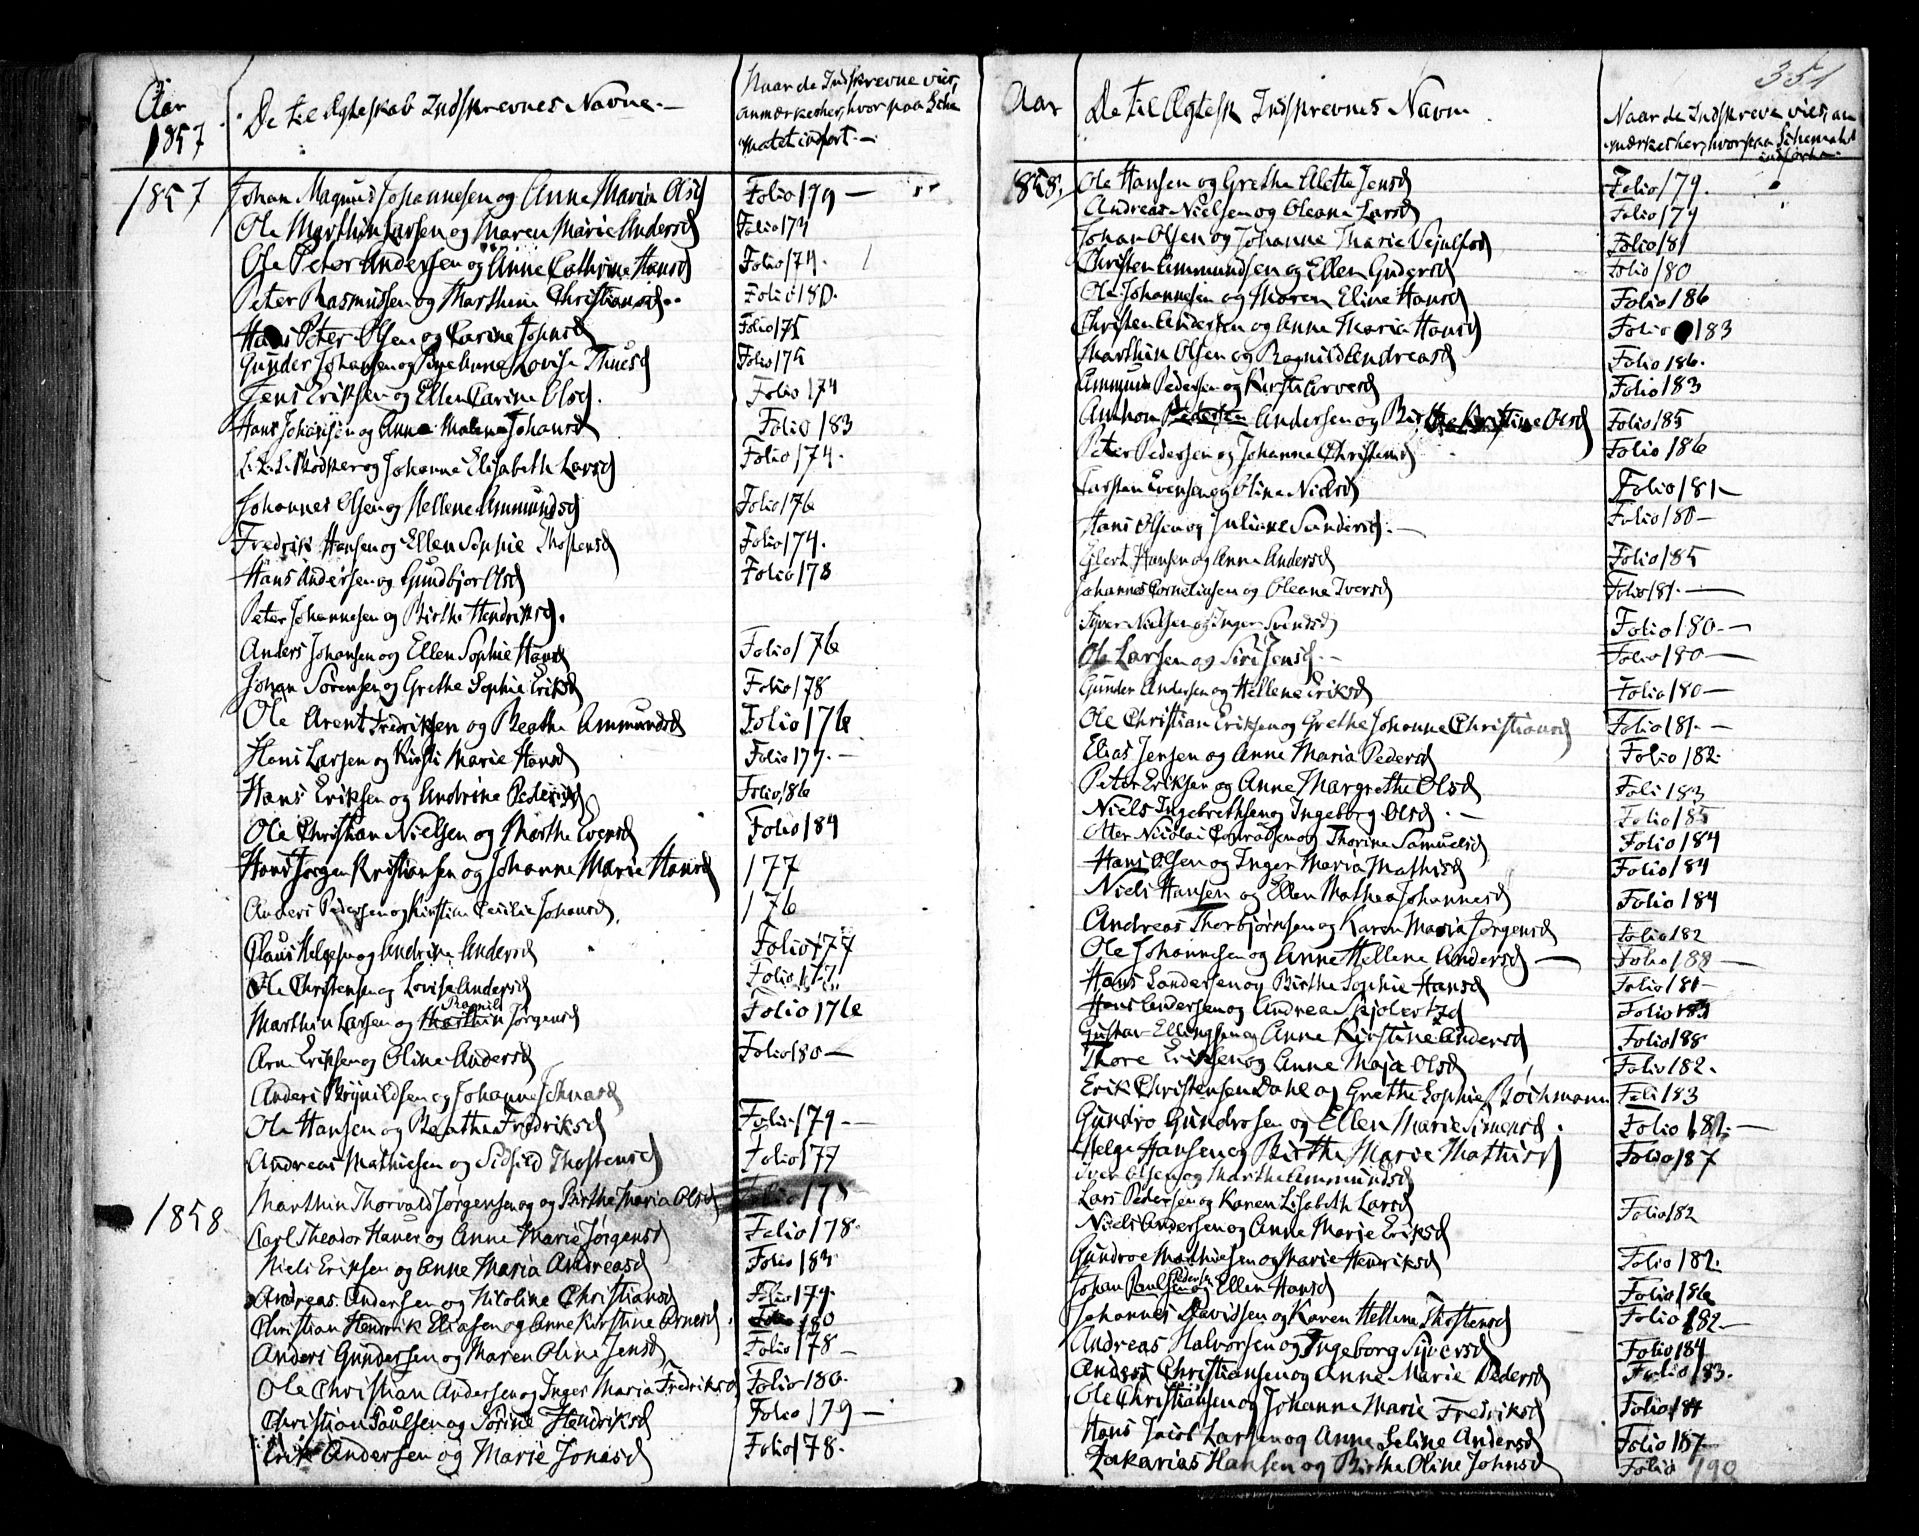 Aar
1857
De til Ægteskab Indskrevnes Navne.—
Naar de Indskrevne vies,
anmærkes her, hvor paa Sche
matet indført.—
1857
Johan Magnus Johannesen og Anne Maria Olsd
Folio 179 —
Ole Marthin Larsen og Maren Marie Andersd
Folio 174
Ole Peter Andersen og Anne Cathrine Hansd
Folio 174.
Peter Rasmussen og Marthine Christiansd..
Folio 180.
Hans Peter Olsen og Carine Johnsd
Folio 175
Gunder Johansen og Anne Lovise Thuesd
Folio 175
Jens Eriksen og Ellen Carine Olsd.
Folio 174
Hans Johansen og Anne Malene Johansd
Folio 183
og Johanne Elisabeth Larsd
Folio 174.
Johannes Olsen og Hellene Ammundsd
Folio 176
Fredrik Hansen og Ellen Sophie Thostensd
Folio 174.
Hans Andersen og Gundbjor Olsd
Folio 178
Peter Johannesen og Birthe Hendriksd.
Anders Johansen og Ellen Sophie Hansd
Folio 176
Johan Sørensen og Grethe Sophie Eriksd
Folio 178
Ole Arent Fredriksen og Beathe Ammundsd
Folio 176
Hans Larsen og Kirsti Marie Hansd
Folio 177. —
Hans Eriksen og Andrine Pedersd
Folio 186
Ole Christian Nielsen og Marthe Evensd
Folio 184
Hans Jørgen Kristiansen og Johanne Marie Hansd
177
Anders Pedersen og Kirstine Cecilie Johansd.
176
Claus Helgesen og Andrine Andersd
Folio 177
Ole Christensen og Lovise Andersd
Folio 177.
Marthin Larsen og Marthin Ragnild Jørgensd
Folio 176
Arne Eriksen og Oline Andersd
Folio 180 —
Anders Brynildsen og Johanne
Ole Hansen og Beathe Fredriksd
Folio 179 —
Andreas Mathiesen og Sidsild Thostensd
Folio 177
1858
Marthin Thorvald Jørgensen og Birthe Maria Olsd
Folio 178
Carl Theodor Hauer og Anne Marie Jørgensd
Folio 178.
Niels Eriksen og Anne Maria Andreasd
Folio 183
Andreas Andersen og Nicoline Christiansd
Folio 179.
Christian Hendrik Eliasen og Anne Kirstine Arnesd.
Folio 180
Anders Gundersen og Maren Oline Jensd
Folio 178 —
Ole Christian Andersen og Inger Maria Fredriksd
Folio 180.
Christian Paulsen og Sørine Hendriksd
Folio 179 —
Erik Andersen og Marie Jonasd
Folio 178.
351
Aar
De til Ægtesk Indskrevnes Navne
Naar de Indskrevne vies, an
mærkes her, hvor paa Schemaht
indførte.
1858.
Ole Hansen og Grethe Alette Jensd
Folio 179.
Andreas Nielsen og Oleane Larsd
Folio 179
Johan Olsen og Johanne Marie Vejulfsd
Folio 181
Christen Ammundsen og Ellen Gudersd
Folio 180
Ole Johannesen og Maren Eline Hansd
Folio 186
Christen Andersen og Anne Maria Hansd
Folio 183
Marthin Olsen og Ragnild Andreasd
Folio 186.
Ammund Pedersen og Kirsti Arvesd
Folio 183
Anthon Pedersen Andersen og Birthe Kirstine Olsd
Folio 185
Peter Pedersen og Johanne Christensd
Folio 186
Carsten Evensen og Oline Nielsd
Folio 181 —
Hans Olsen og Juliane Sandersd. —
Folio 180 —
Glert Hansen og Anne Andersd
Folio 185
Johannes Corneliusen og Oleane Iversd
Folio 181. —
Syver Nielsen og Inger Svendsd
Folio 180. —
Ole Larsen og Siri Jensd. —
Folio 180 —
Gunder Andersen og Hellene Eriksd
Folio 180 —
Ole Christian Eriksen og Grethe Johanne Christiansd
Folio 181. —
Elias Jensen og Anne Maria Pedersd
Folio 182.
Peter Eriksen og Anne Margrethe Olsd
Foli 183
Niels Ingebrethsen og Ingeborg Olsd. —
Folio 185
Otter Nicolai Conradsen og Thorine Samuelsd
Folio 184
Hans Olsen og Inger Maria Mathisd
Folio 184
Niels Hansen og Ellen Mathea Johannesd
Folio 184
Andreas Thorbjørnsen og Karen Maria Jørgensd
Folio 182
Ole Johannesen og Anne Hellene Andersd —
Folio 188 —
Hans Sandersen og Birthe Sophie Hansd
Folio 181 —
Hans Andersen og Andrea
Folio 183
Gustav Ellingsen og Anne Kirstine Andersd
Folio 188
Thore Eriksen og Anne Maja Olsd
Folio 182.
Erik Christensen Dahl og Grethe Sophie Bøichmann
Foli 183
Gundro Gundrosen og Ellen Marie Simensd.
Folio 181. —
Helge Hansen og Birthe Marie Mathisd
Folio 187
Iver Olsen og Marthe Ammundsd
Lars Pedersen og Karen Lisabeth Larsd
Folio 182
Niels Andersen og Anne Marie Eriksd
Gundroe Mathiesen og Marie Henriksd
Folio 182.
Johan Paulsen Pedersen og Ellen Hansd
Folio 186
Johannes Davidsen og Karen Hellene Thostensd
Folio 182 —
Andreas Halvorsen og Ingeborg Syversd
Folio 184
Anders Christiansen og Anne Marie Pedersd
Folio 183.
Ole Christiansen og Johanne Marie Fredriksd
Folio 184
Hans Jacob Larsen og Anne Seline Andersd
Folio 187
Zakarias Hansen og Birthe Oline Johnsd
Folio 190